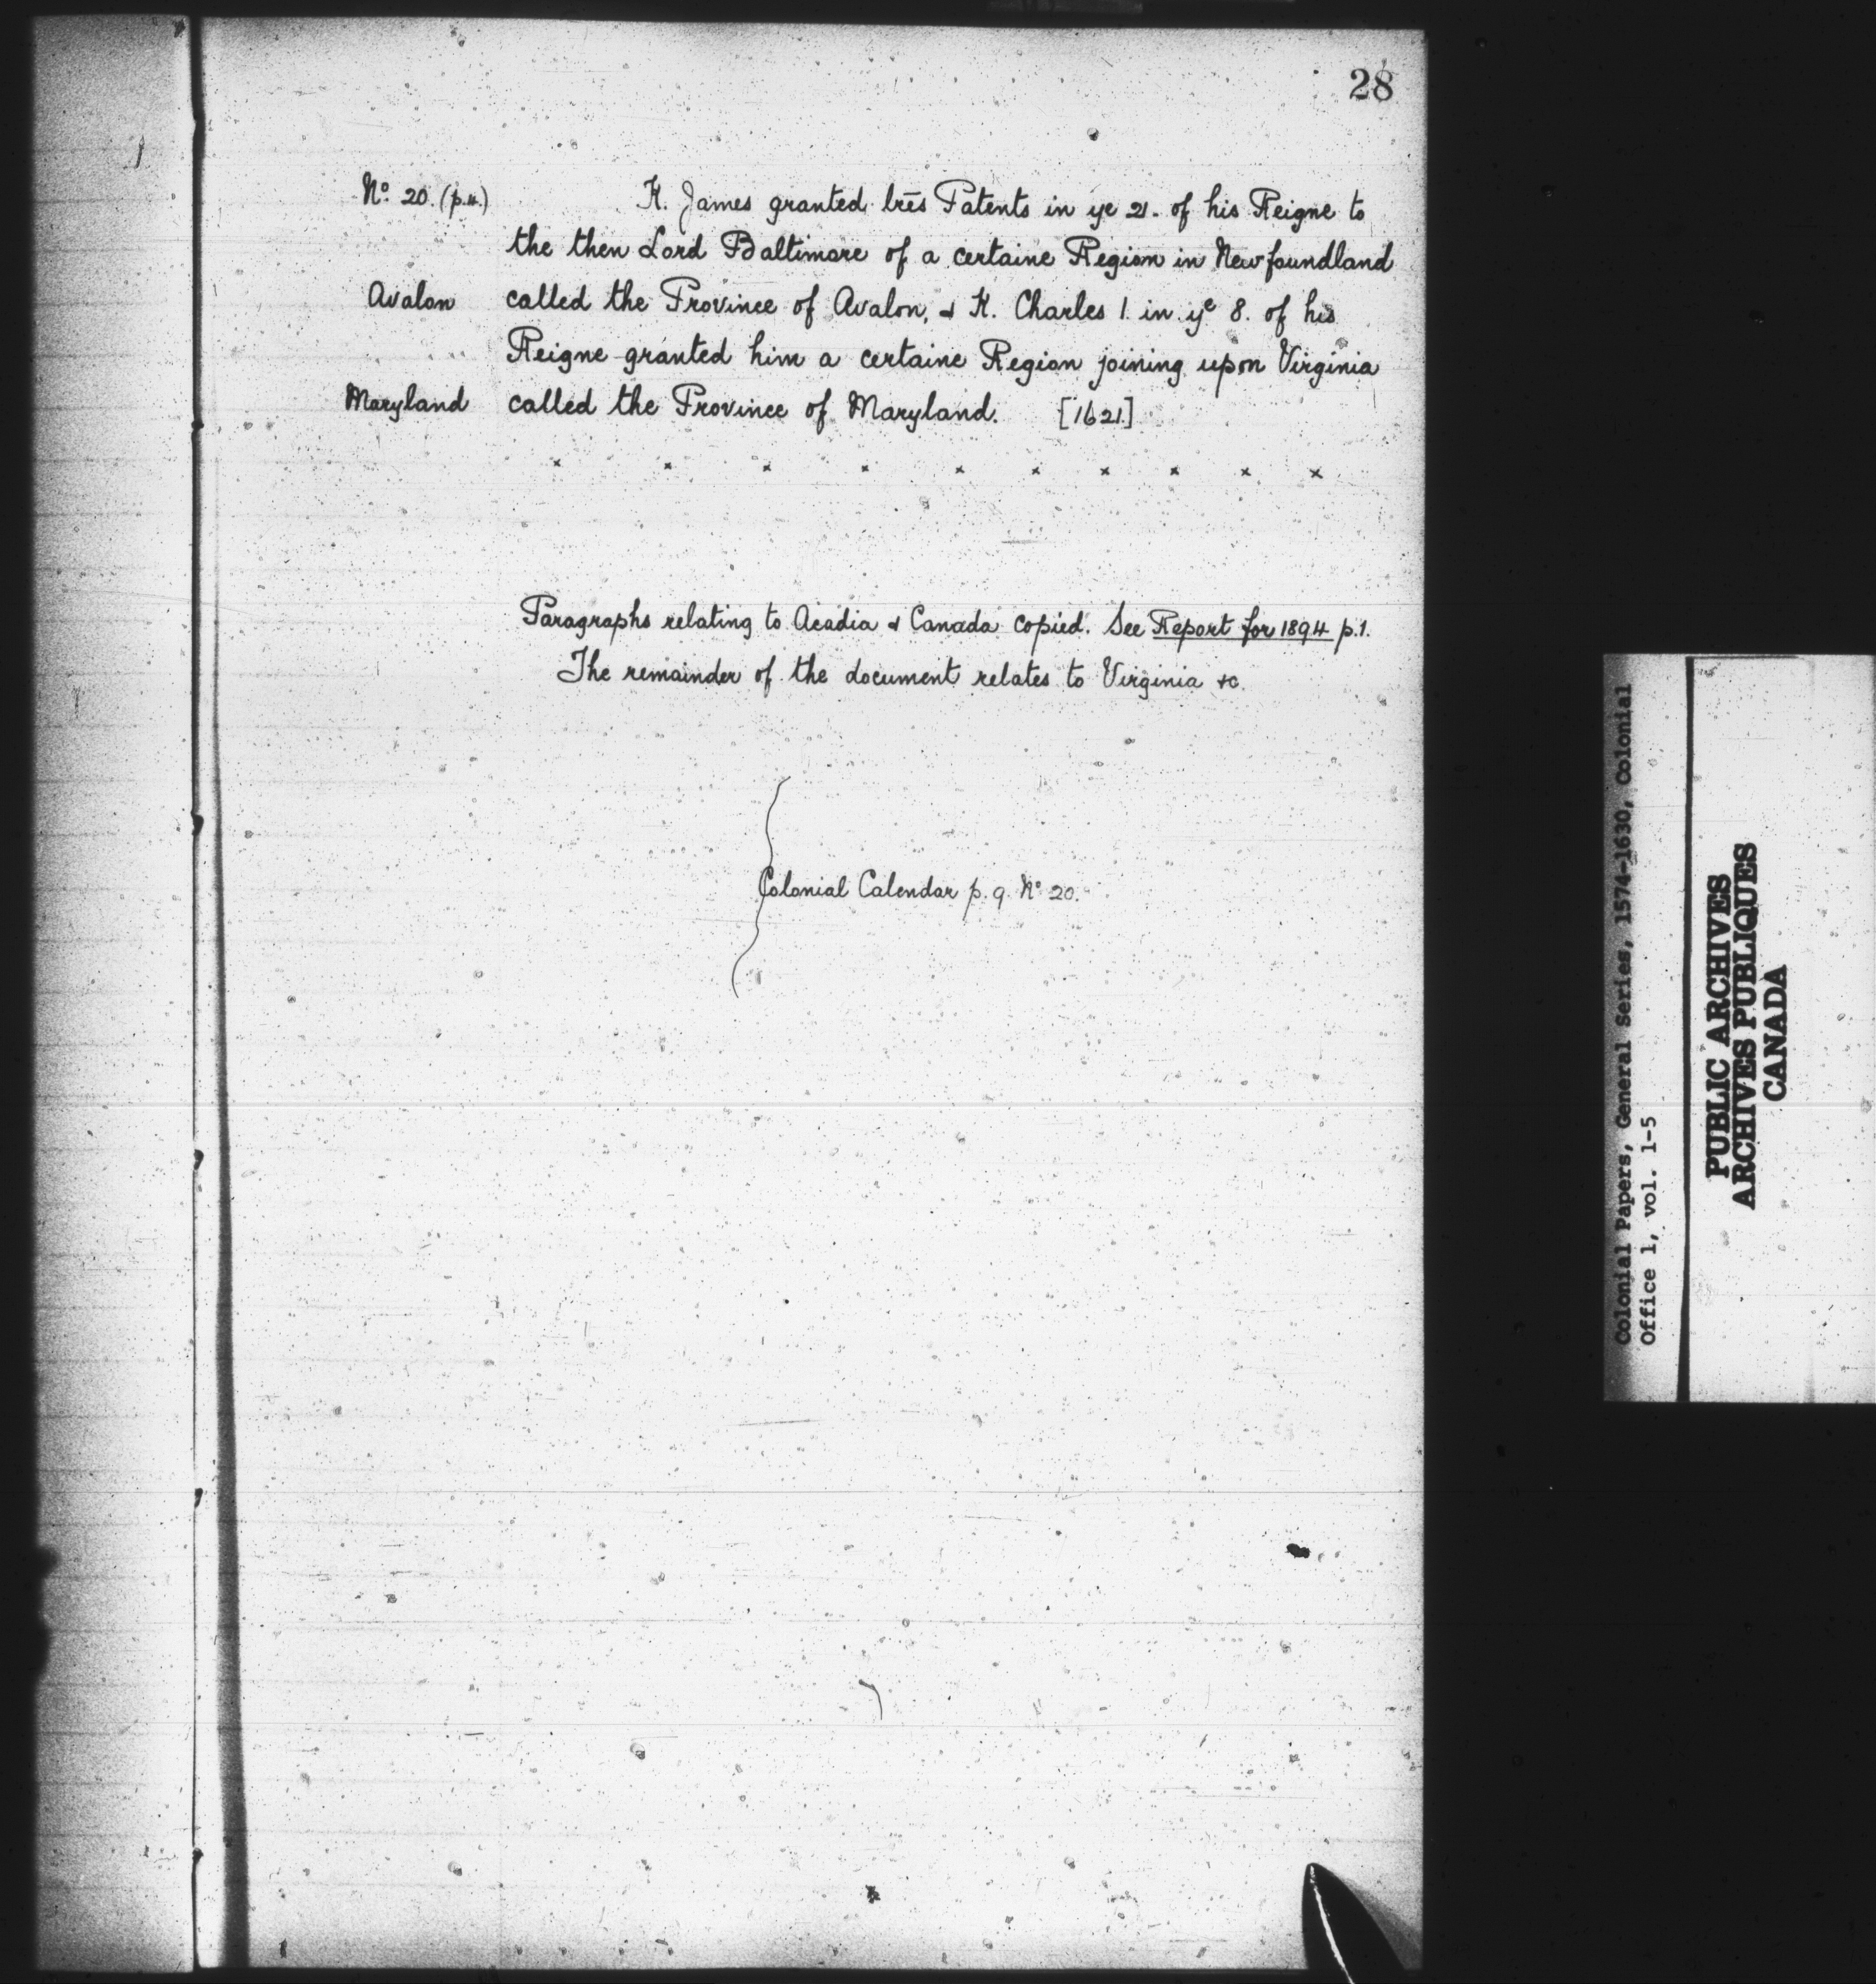 28
No. 20. (p.4.) K. James granted lr̄es Patents in ye 21. of his Reigne to
the then Lord Baltimore of a certaine Region in Newfoundland
Avalon called the Province of Avalon, & K. Charles 1. in ye 8. of his
Reigne granted him a certaine Region joining upon Virginia
Maryland called the Province of Maryland. [1621.]
x x x x x x x x x x
Paragraphs relating to Acadia & Canada copied. See Report for 1894 p.1.
The remainder of the document relates to Virginia &c.
Colonial Calendar p. 9. No 20.
Colonial Papers, General Series, 1574-1630, Colonial
Office 1, vol. 1-5
PUBLIC ARCHIVES
ARCHIVES PUBLIQUES
CANADA